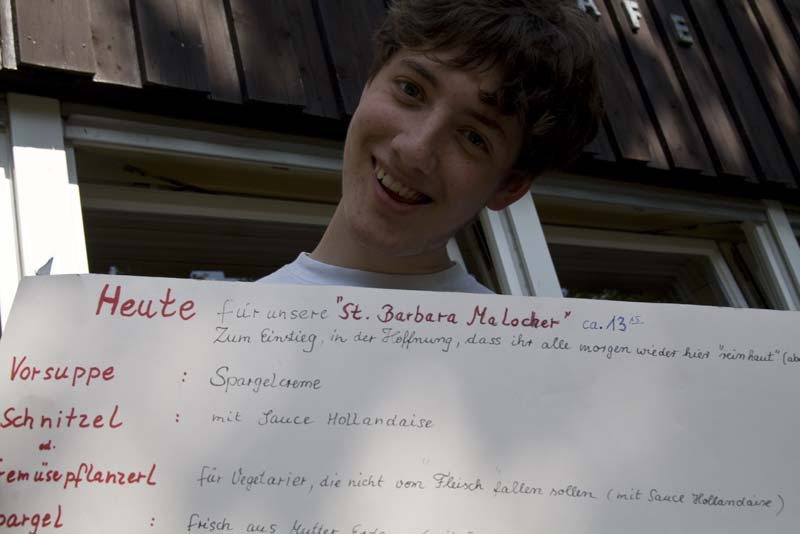 AFE
Heute für unsere "St. Barbara Malocher" ca. 13 15
Zum Einstieg, in der Hoffnung, dass ihr alle morgen wieder hier "reinhaut" (abe
Vorsuppe : Spargelcreme
Schnitzel : mit Sauce Hollandaise
od.
emüsepflanzerl für Vegetarier, die nicht vom "Fleisch" fallen sollen (mit Sauce Hollandaise)
pargel : frisch aus Mutter Erde